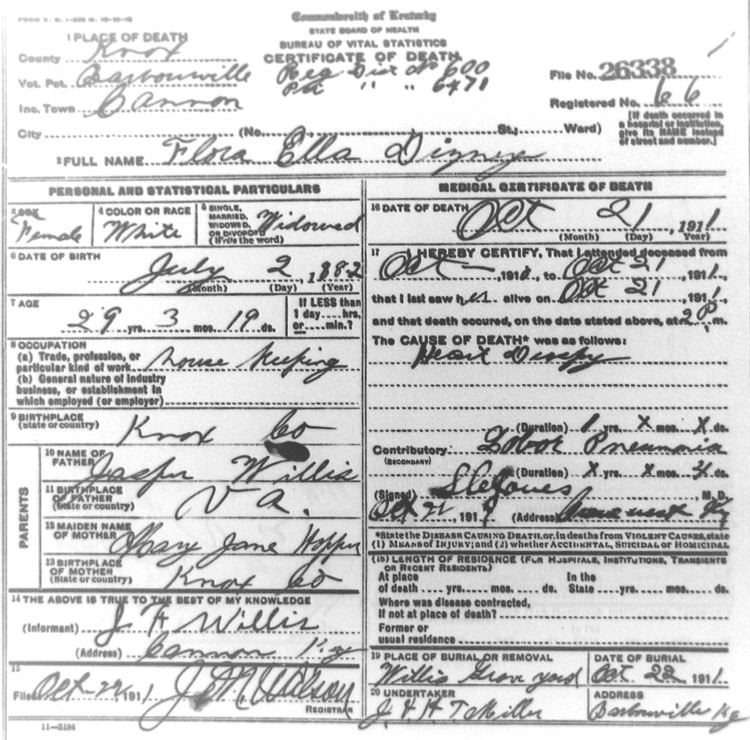 Commonwealth of Kentucky
STATE BOARD OF HEALTH
BUREAU OF VITAL STATISTICS
CERTIFICATE OF DEATH
1 PLACE OF DEATH
County Knox
Vot. Pct. Barbourville
Inc. Town Cannon
Reg Dist No 600
Pct " " 6471
File No. 26338
Registered No. 66
City (No. St.; Ward)
[If death occurred in a hospital or institution, give its NAME instead of street and number.]
2 FULL NAME Flora Ella Dizney
PERSONAL AND STATISTICAL PARTICULARS
3 SEX Female
4 COLOR OR RACE White
5 SINGLE, MARRIED, WIDOWED, OR DIVORCED (Write the word) Widowed
6 DATE OF BIRTH July 2, 1882
(Month) (Day) (Year)
7 AGE 29 yrs. 3 mos. 19 ds.
If LESS than 1 day....hrs, or....min.?
8 OCCUPATION
(a) Trade, profession, or particular kind of work House Keeping
(b) General nature of industry business, or establishment in which employed (or employer)
9 BIRTHPLACE (State or country) Knox Co
PARENTS
10 NAME OF FATHER Jasper Willis
11 BIRTHPLACE OF FATHER (State or country) Va.
12 MAIDEN NAME OF MOTHER Mary Jane Hopper
13 BIRTHPLACE OF MOTHER (State or country) Knox Co
14 THE ABOVE IS TRUE TO THE BEST OF MY KNOWLEDGE
(Informant) J. H Willis
(Address) Cannon Ky
15
Filed Oct-22 1911 J. M. Watson
REGISTRAR
11-3184
MEDICAL CERTIFICATE OF DEATH
16 DATE OF DEATH Oct 21, 1911
(Month) (Day) (Year)
17 I HEREBY CERTIFY, That I attended deceased from
Oct –, 191, to Oct 21, 1911,
that I last saw her alive on Oct 21, 1911,
and that death occured, on the date stated above, at 2 P m.
The CAUSE OF DEATH* was as follows:
Heart Dropsy
(Duration) 1 yrs. X mos. X ds.
Contributory (SECONDARY) Lobar Pneumonia
(Duration) X yrs. X mos. ds.
(Signed) M. D.
Oct 21, 191 (Address) Ky
*State the DISEASE CAUSING DEATH, or, in deaths from VIOLENT CAUSES, state
(1) MEANS OF INJURY; and (2) whether ACCIDENTAL, SUICIDAL or HOMICIDAL
18 LENGTH OF RESIDENCE (FOR HSPITALS, INSTITUTIONS, TRANSIENTS OR RECENT RESIDENTS)
At place of death ....yrs.....mos.....ds. In the State ....yrs.....mos.....ds.
Where was disease contracted,
If not at place of death?
Former or usual residence
19 PLACE OF BURIAL OR REMOVAL Willis Grave yard
DATE OF BURIAL Oct. 22 1911
20 UNDERTAKER J. & H T Miller
ADDRESS Barbourville Ky